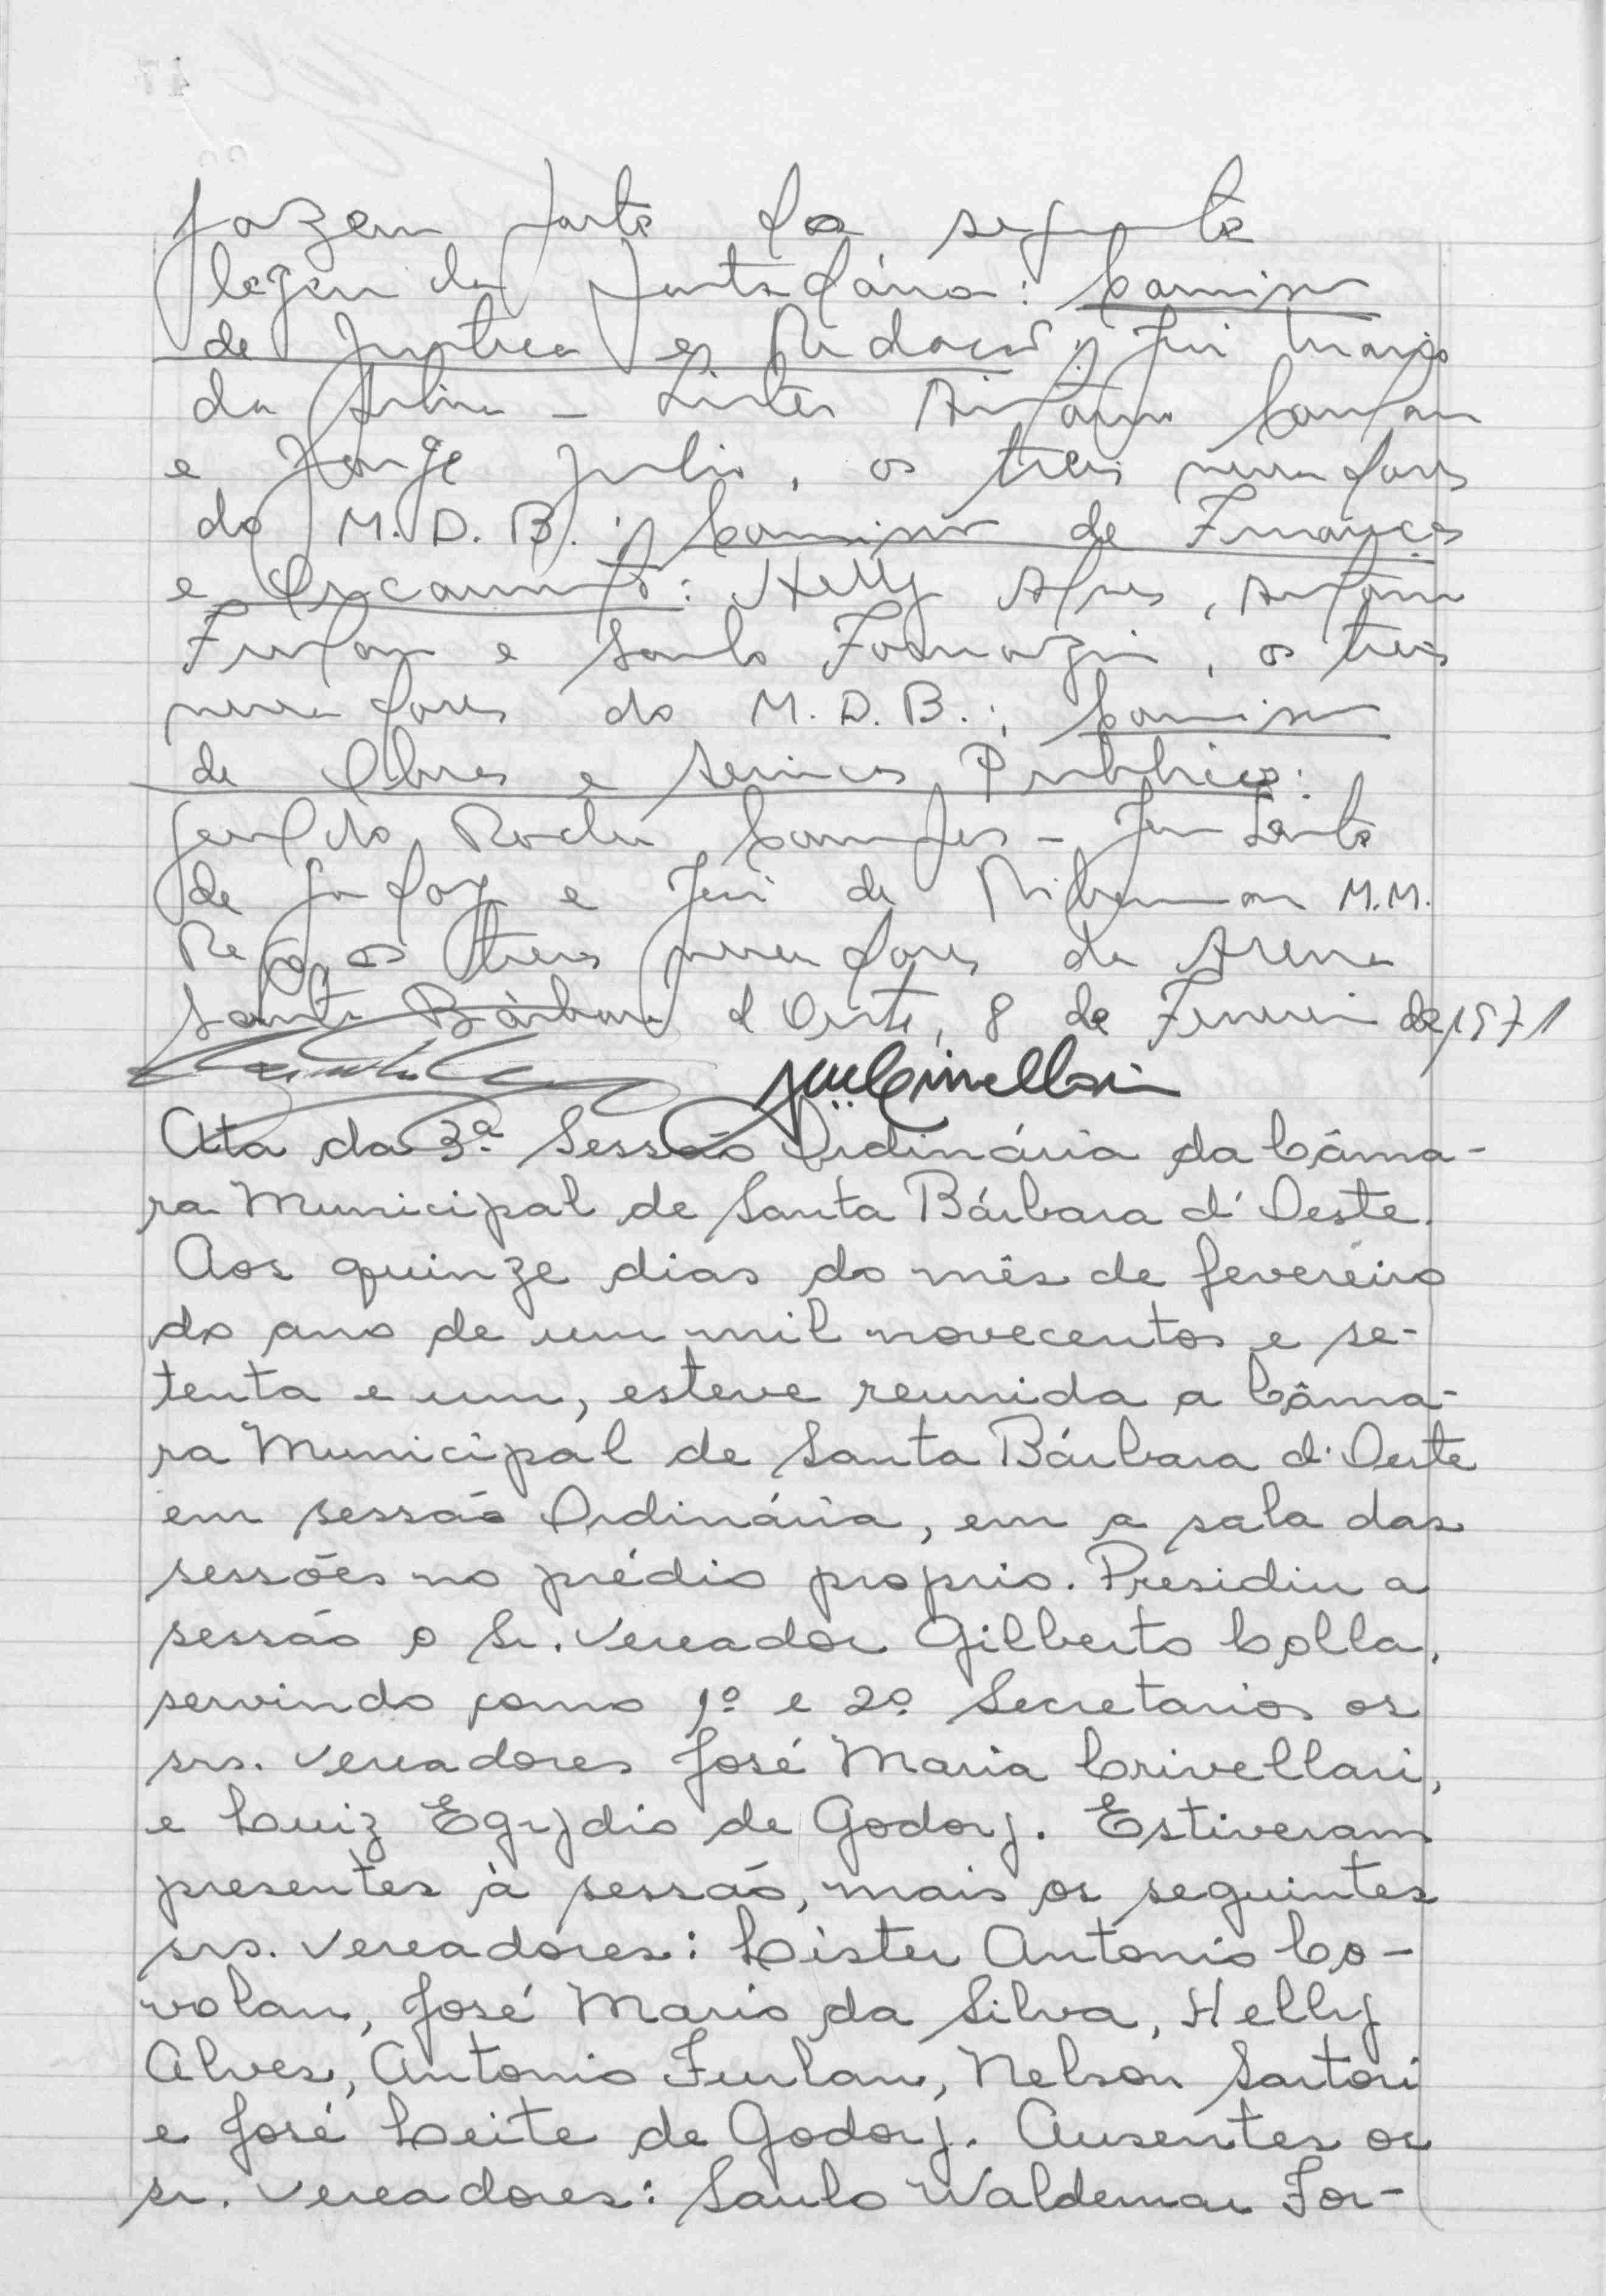 fazem parte da seguinte
legenda partidária: Comissão
de Justiça e Redação: José Mario
da Silva - Lister Antônio Covolan
e Jorge Julio, os tres vereadores
do M.D.B.; Comissão de Finanças
e Orçamento: Helly Alves, Antônio
Furlan e Saulo Fornazin, os tres
vereadores do M.D.B.; Comissão
de Obras e Serviços Publicos:
Geraldo Rocha Campos - José Leite
de Godoy e José de Ribamar M.M.
Rego, os tres vereadores da Arena
Santa Bárbara d'Oeste, 8 de Fevereiro de 1971
Ata da 3ª Sessão Ordinária da Câma-
ra Municipal de Santa Bárbara d'Oeste.
Aos quinze dias do mês de fevereiro
do ano de um mil novecentos e se-
tenta e um, esteve reunida a Câma-
ra Municipal de Santa Bárbara d'Oeste
em sessão Ordinária, em a sala das
sessões no prédio proprio. Presidiu a
sessão o Sr. Vereador Gilberto Colla,
servindo como 1º e 2º Secretarios os
srs. Vereadores José Maria Crivellari,
e Luiz Egydio de Godoy. Estiveram
presentes à sessão, mais os seguintes
srs. Vereadores: Lister Antonio Co-
volan, José Mario da Silva, Helly
Alves, Antonio Furlan, Nelson Sartori
e José Leite de Godoy. Ausentes os
sr. Vereadores: Saulo Waldemar For-